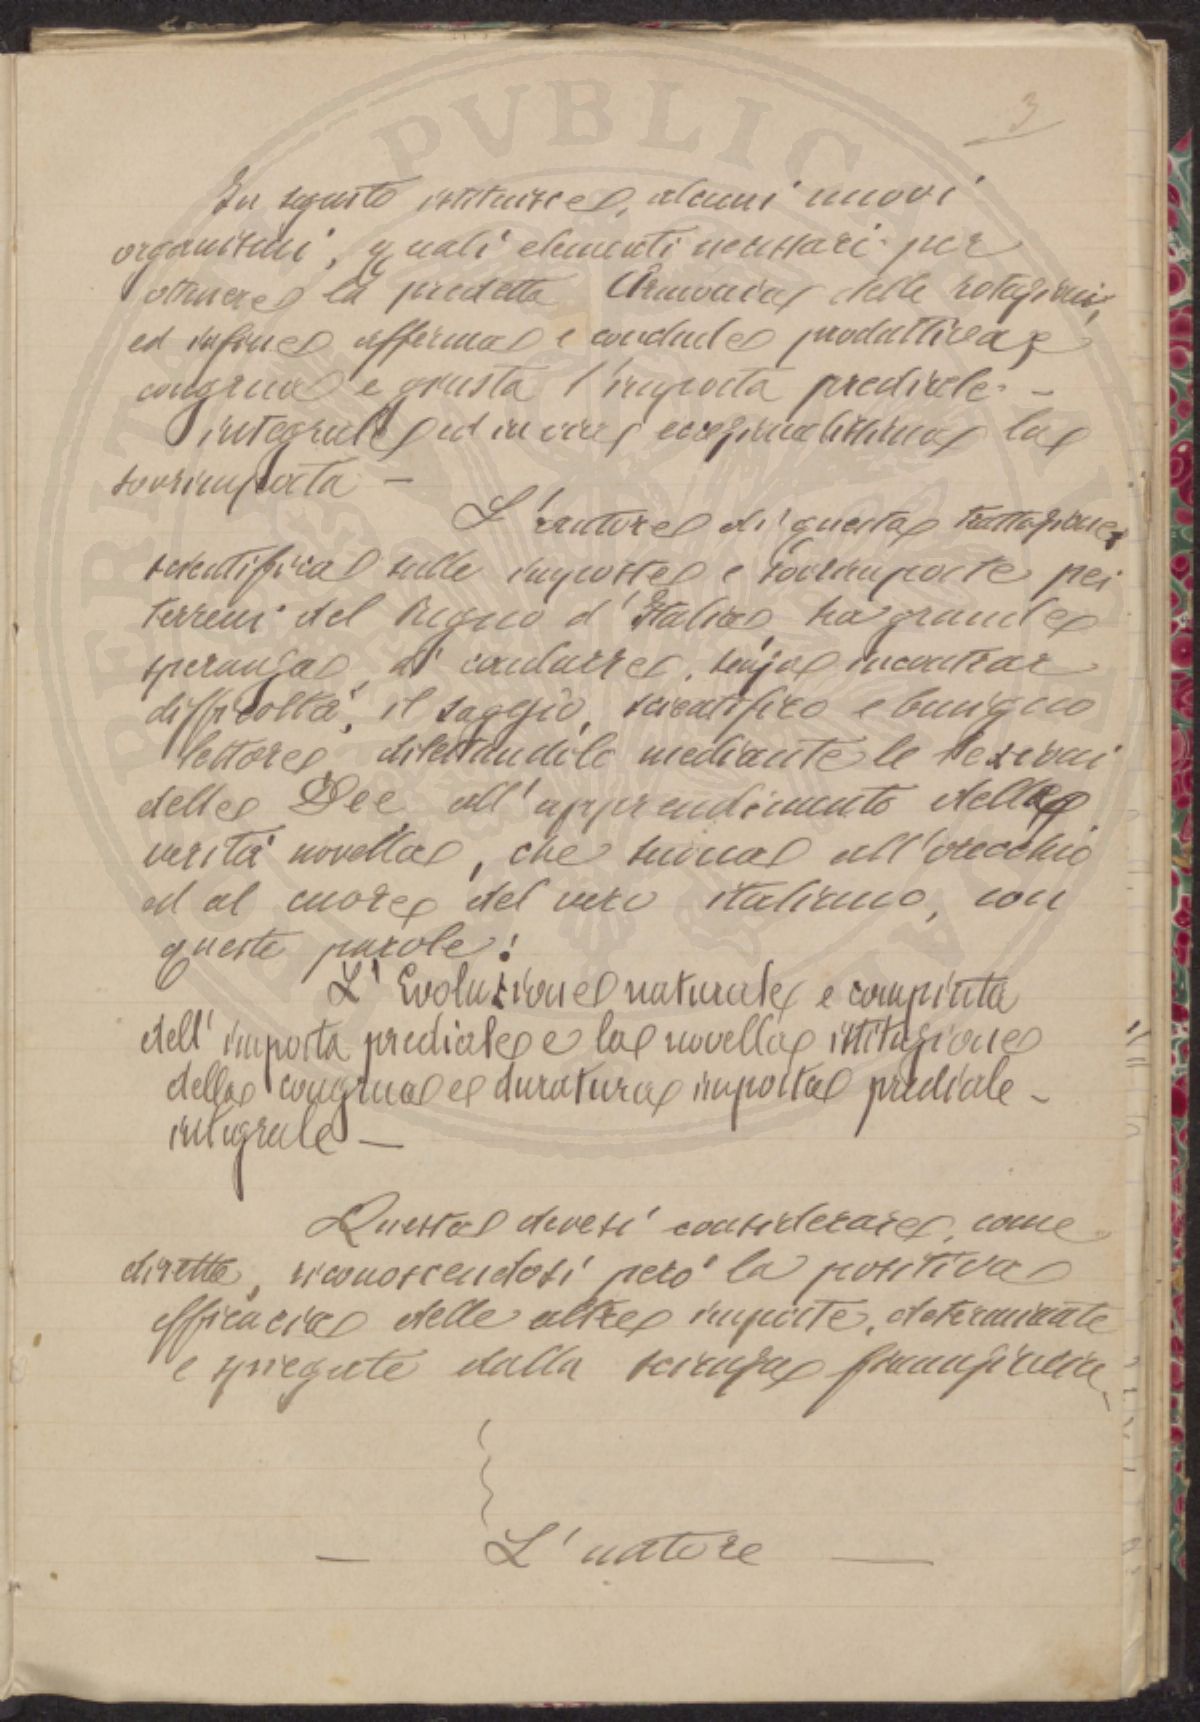 3
In seguito istituisce, alcuni nuovi
organismi, quali elementi necessari per
ottenere la predetta Armonia delle rotazioni,
ed infine afferma e conclude produttiva,
congrua e giusta l'imposta prediale-
integrale ed in vera eccezionalissima la
sovrimposta —
L'autore di questa trattazione
scientifica sulle imposte e sovrimposte pei
terreni del Regno d'Italia, ha grande
speranza, di condurre, senza incontrar
difficoltà, il saggio, scientifico e benigno
lettore, dilettandolo mediante le
delle Dee all'apprendimento della
verità novella, che suona all'orecchio
ed al cuore del vero italiano, con
queste parole:
L'Evoluzione naturale e compiuta
dell'imposta prediale e la novella istituzione
della congrua e duratura imposta prediale-
integrale —
Questa devesi considerare, come
diretta, riconoscendosi però la positiva
efficacia delle altre imposte, determinate
e spiegate dalla scienza finanziaria_
— L'autore —
PERETVM PVBLICA